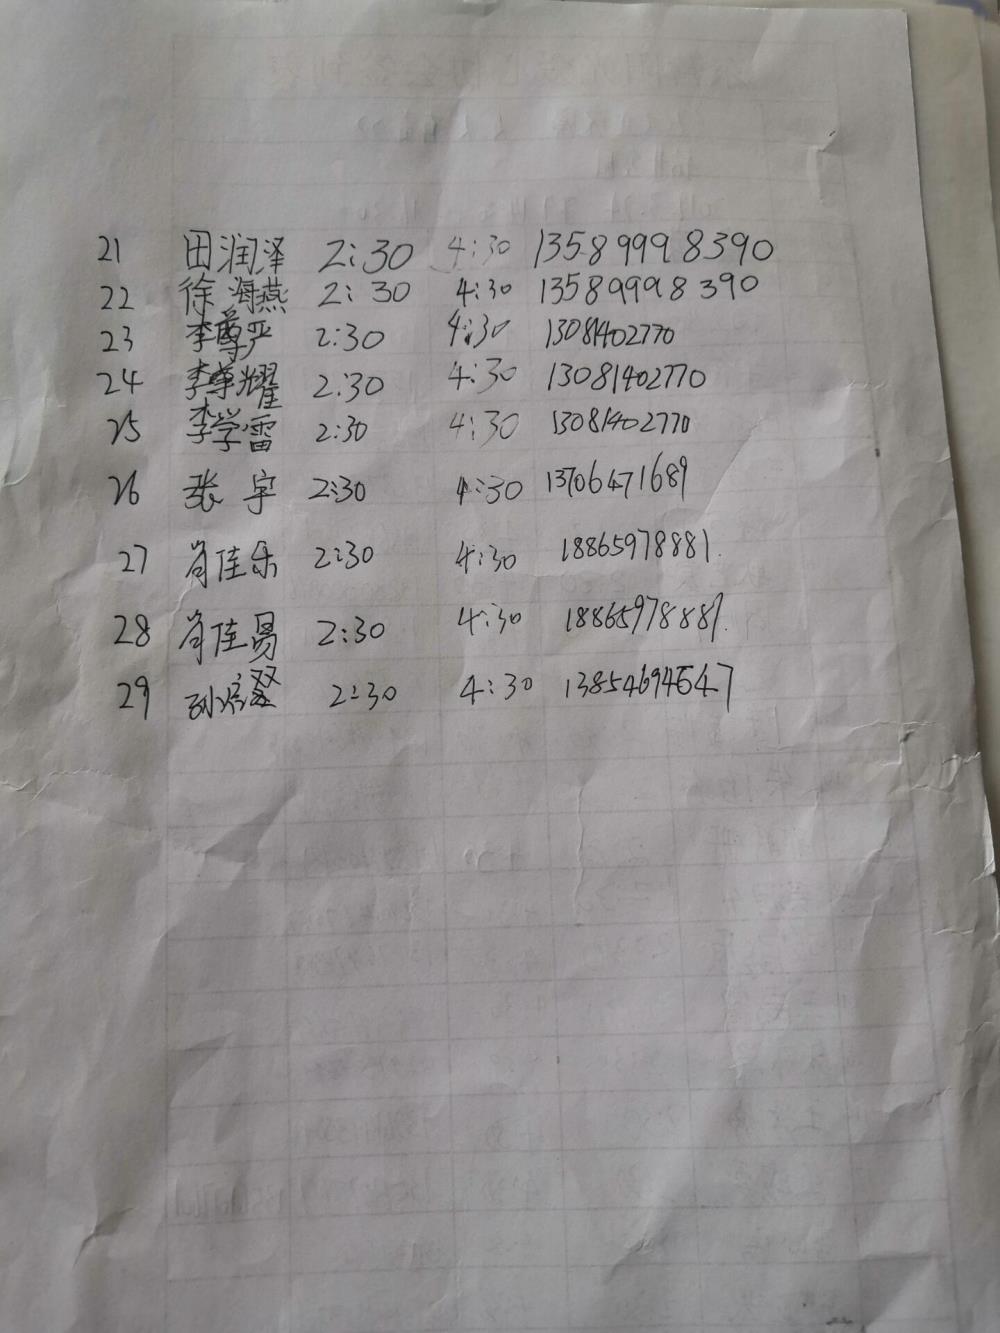 21 田润泽 2:30 4:30 13589998390
22 徐海燕 2:30 4:30 13589998390
23 李尊严 2:30 4:30 13081402770
24 李尊耀 2:30 4:30 13081402770
25 李学雷 2:30 4:30 13081402770
26 张宇 2:30 4:30 13706471689
27 肖佳乐 2:30 4:30 18865978881.
28 肖佳勇 2:30 4:30 18865978881.
29 孙 2:30 4:30 13854694547